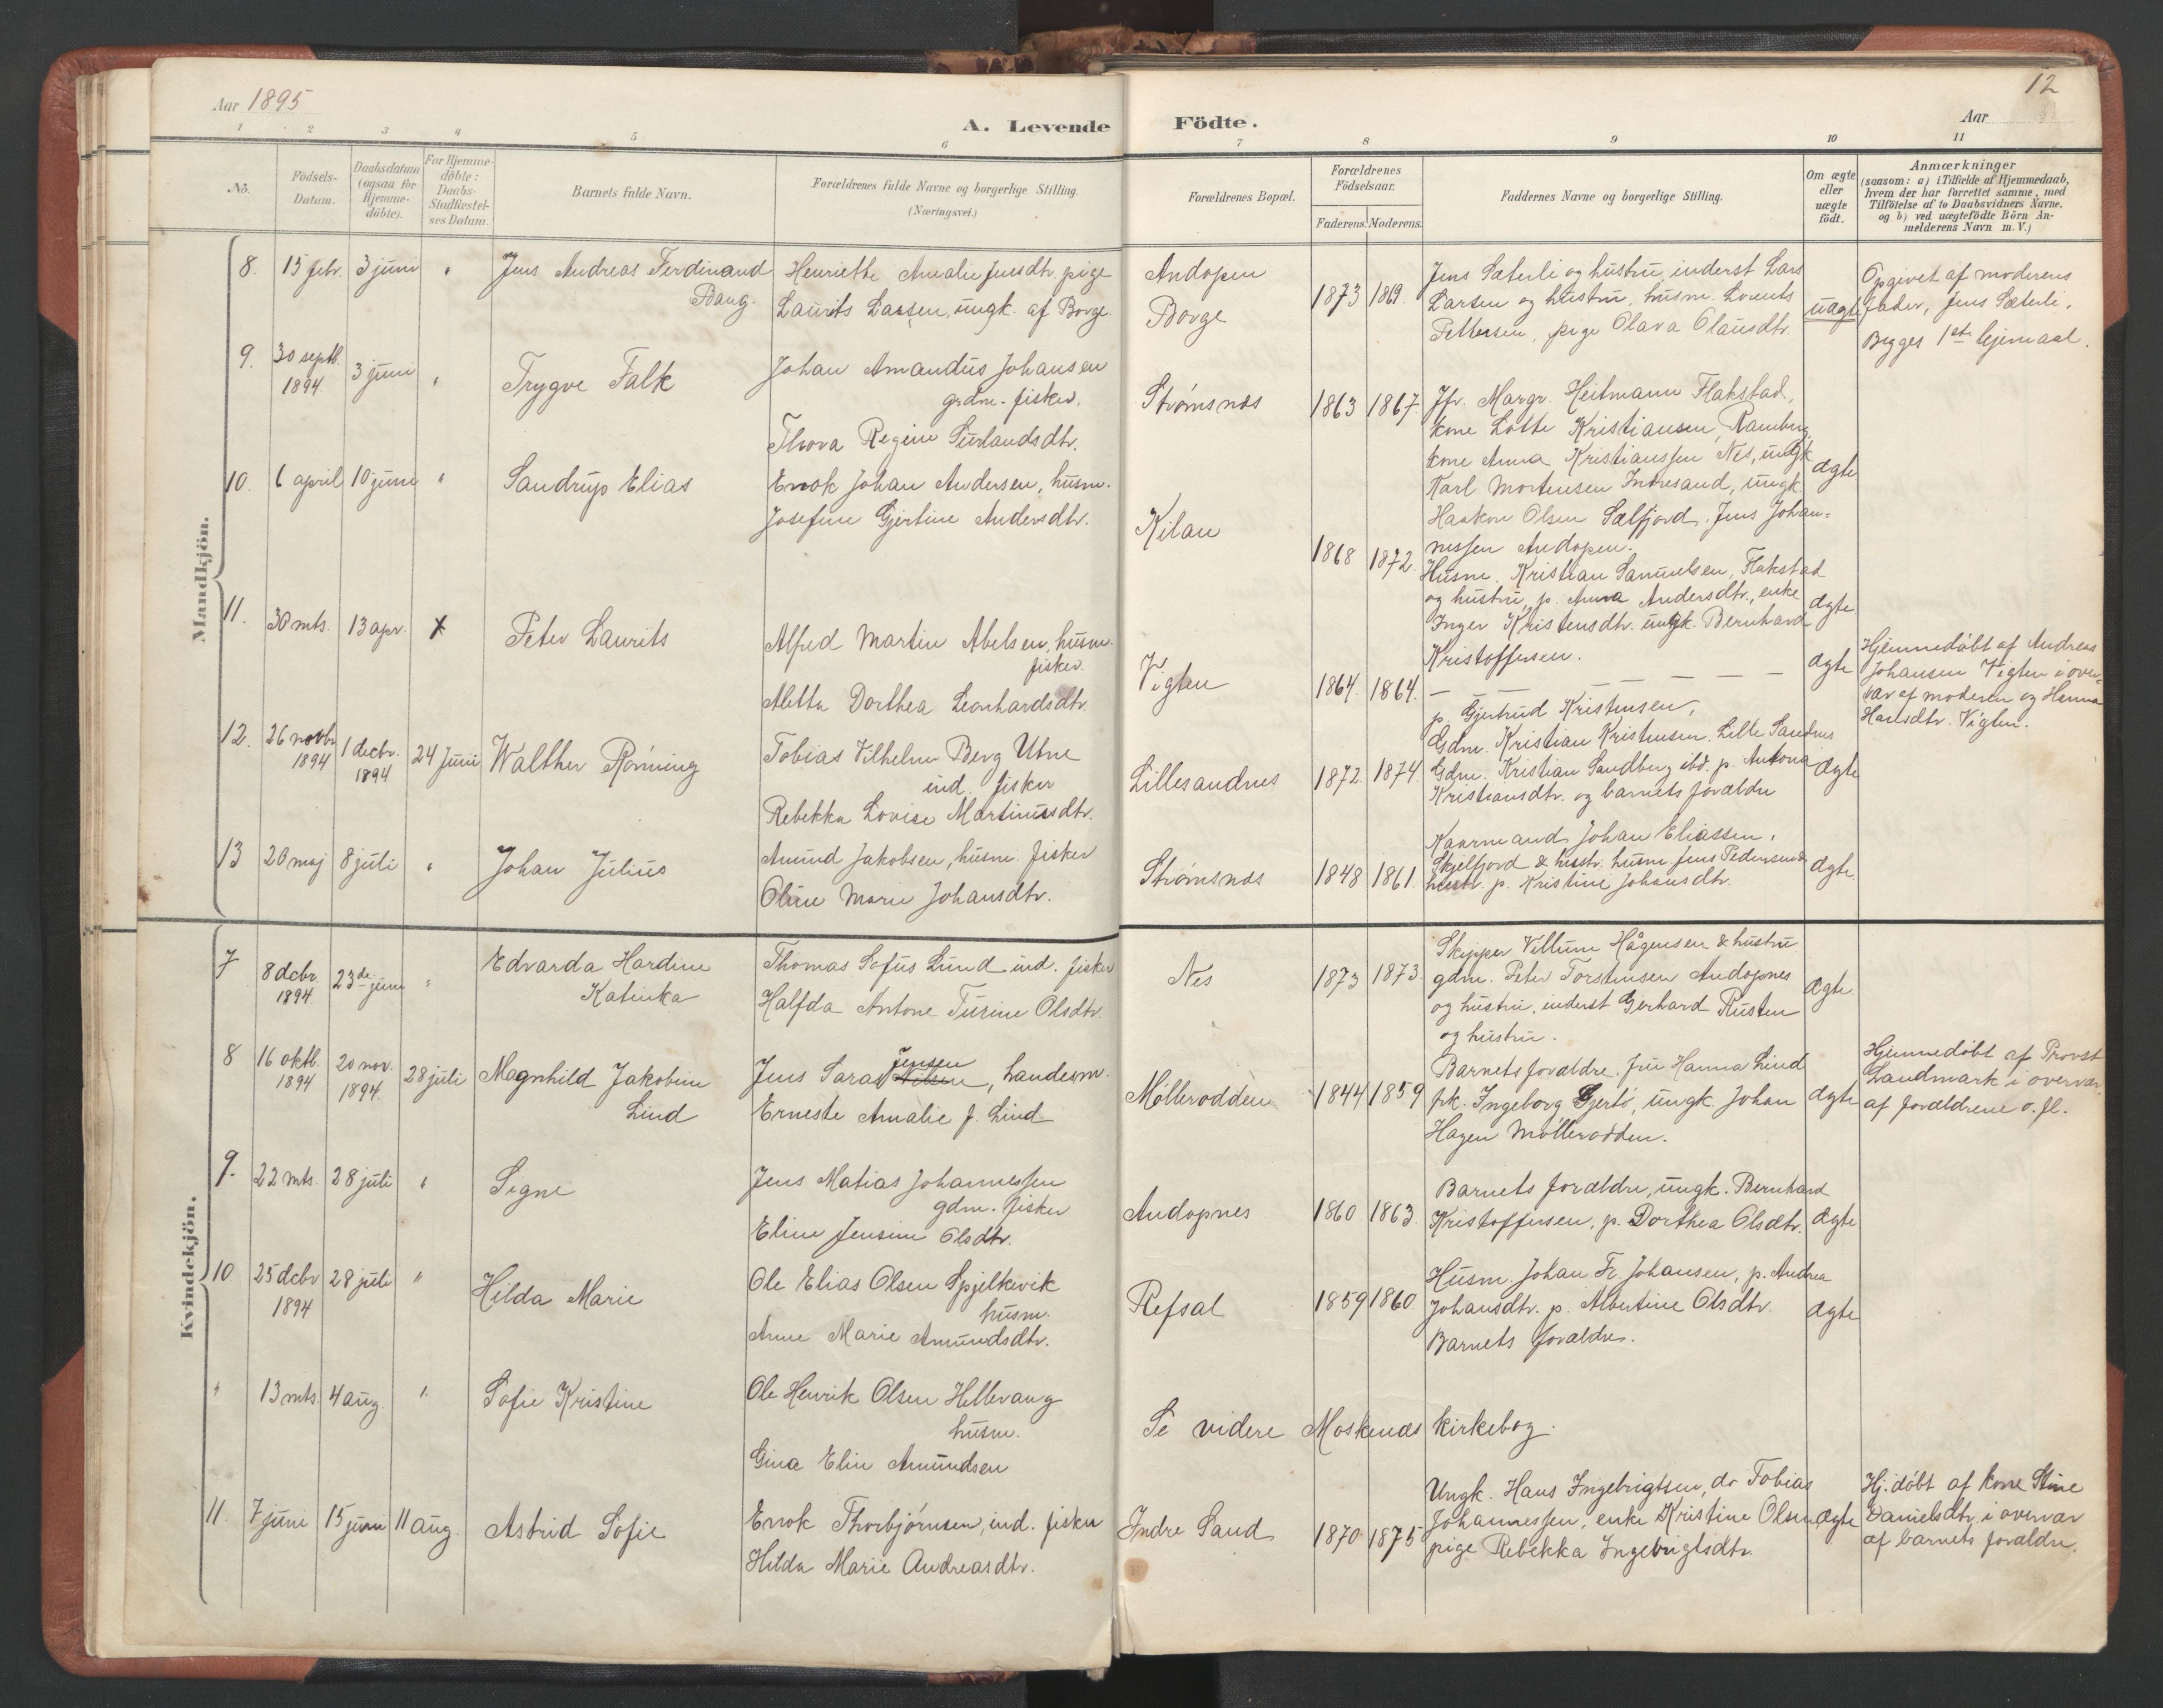 Aar 1895
A. Levende
Födte.
12
Aar
1 2 3 4 5 6 7 8 9 10 11
No.
Födsels-
Datum.
Daabsdatum
(ogsaa for
Hjemme-
döbte).
For Hjemme-
döbte:
Daabs-
Stadfæstel-
ses Datum.
Barnets fulde Navn.
Forældrenes fulde Navne og borgerlige Stilling.
(Næringsvei.)
Forældrenes Bopæl.
Forældrenes
Födselsaar.
Faderens. Moderens.
Faddernes Navne og borgerlige Stilling.
Om ægte
eller
uægte
födt.
Anmærkninger
(saasom: a) i Tilfælde af Hjemmedaab,
hvem der har forrettet samme, med
Tilföielse af to Daabsvidners Navne.
og b) ved uægtefödte Börn An-
melderens Navn m. V.)
Mandkjön.
8. 15 febr. 3 juni " Jens Andreas Ferdinand
Bang.
Henriette Amalie Jensdtr. pige
Laurits Larsen, ungk. af Borge
Andopen
Borge
1873 1869.
Jens Sæterli og hustru, inderst Lars
Larsen og hustru, husm. Lorents
Pettersen, pige Olava Olausdtr.
uægte
Opgivet af moderens
fader, Jens Sæterli.
Begges 1ste lejermaal.
9. 30 septb.
1894
3 juni " Trygve Falk
Johan Amandus Johansen
grdm. fisker.
Thora Regine Surlandsdtr.
Strømsnæs
1863 1867.
Jfr. Margr. Heitmann Flakstad,
kone Lotte Kristiansen, Ramberg,
kone Anna Kristianssen Nes, ungk
Karl Mortensen Indresand, ungk.
Haakon Olsen Sælfjord. Jens Johan=
nessen Andopen.
ægte
10. 6 april 10 juni " Sandrup Elias
Enok Johan Andersen, husm.
Josefine Gjertine Andersdtr.
Kilan
1868 1872.
Husm. Kristian Samuelsen, Flakstad
og hustru, p. Anna Andersdtr., enke
Inger Kristensdtr. ungk. Bernhard
Kristoffersen.
ægte
11. 30 mts. 13 apr. x Peter Laurits
Alfred Martin Abelsen, husm.
fisker.
Aletta Dorthea Leonhardsdtr.
Vigten
1864. 1864.
— — — — — — —
ægte
Hjemmedöbt af Andreas
Johansen Vigten i over-
vær af moderen og Hanna
Hansdtr. Vigten.
12. 26 novbr.
1894
1 decbr.
1894
24 Juni Walther Rönning
Tobias Vilhelm Berg Utne
ind. fisker
Rebekka Lovise Martinusdtr.
Lillesandnes
1872. 1874.
p. Gjertrud Kristensen,
Gdm. Kristian Kristensen. Lille Sandnes
Gdm. Kristian Sandberg ibd. p. Antona
Kristiansdtr. og barnets forældre
ægte
13 20 maj 8 juli " Johan Julius
Amund Jakobsen, husm. fisker
Oline Marie Johansdtr.
Strømsnæs
1848 1861.
Kaarmand Johan Eliassen,
Skjelfjord & hustr. husm. Jens Pedersen &
hustr. p. Kristine Johansdtr.
ægte.
Kvindekjön.
7 8 dcbr.
1894.
23de juni " Edvarda Hardine
Katinka
Thomas Sofus Lund ind. fisker
Halfda Antone Turine Olsdtr.
Nes
1873 1873.
Skipper Villum Hågensen & hustru
gdm. Peter Torstensen Andopnes
og hustru, inderst Gerhard Rusten
og hustru.
ægte
8 16 oktb.
1894
20 nov.
1894.
28 juli Magnhild Jakobine
Lind
Jensen
Jens Saras, handelsm.
Erneste Amalie f. Lind
Möllerodden
1844 1859
Barnets forældre. fru Hanna Lind
frk. Ingeborg Gjertö, ungk. Johan
Hagen Möllerodden.
ægte
Hjemmedöbt af Provst
Landmark i overvær
af forældrene o. fl.
9. 22 mts. 28 juli " Signe
Jens Matias Johannessen
gdm. fisker
Eline Jensine Olsdtr.
Andopnes
1860 1863.
Barnets forældre, ungk. Bernhard
Kristoffersen, p. Dorthea Olsdtr.
ægte
10 25 dcbr
1894
28 juli " Hilda Marie
Ole Elias Olsen Spjelkevik
husm.
Anne Marie Amundsdtr.
Refsal
1859 1860.
Husm. Johan Fr. Johansen, p. Andrea
Johansdtr. p. Albertine Olsdtr.
Barnets forældre.
ægte
" 13 mts. 4 aug. " Sofie Kristine
Ole Henrik Olsen Hellevang
husm.
Gina Elin Amundsen
Se videre Moskenæs kirkebog.
11. 7 juni 15 juni 11 aug. Astrid Sofie
Enok Thorbjörnsen, ind. fisker
Hilda Marie Andreasdtr.
Indre Sand
1870 1875
Ungk. Hans Ingebrigtsen, do Tobias
Johannessen, enke Kristine Olsen
pige Rebekka Ingebrigtsdtr.
ægte
Hj. döbt af kone Stine
Danielsdtr. i overvær
af barnets forældre.